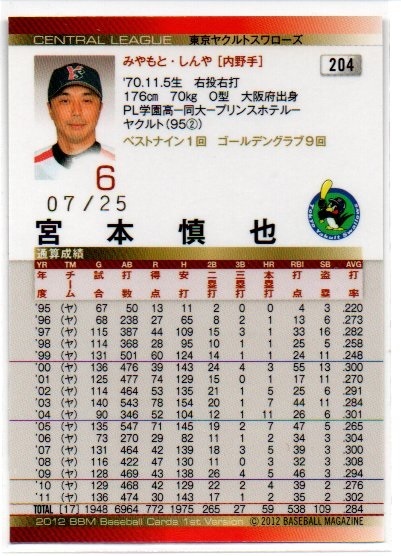 CENTRAL LEAGUE 東京ヤクルトスワローズ
みやもと・しんや [内野手]
204
'70.11.5生 右投右打
176㎝ 70kg O型 大阪府出身
PL学園高ー同大ープリンスホテルー
ヤクルト(95②)
ベストナイン1回 ゴールデングラブ9回
6
07/25
宮本慎也
通算成績
YR TM G AB R H 2B 3B HR RBI SB AVG
年度 チーム 試合 打数 得点 安打 二塁打 三塁打 本塁打 打点 盗塁 打率
'95 (ヤ) 67 50 13 11 2 0 0 4 3 .220
'96 (ヤ) 68 238 27 65 8 2 1 13 6 .273
'97 (ヤ) 115 387 44 109 15 3 1 33 16 .282
'98 (ヤ) 114 368 28 95 10 1 1 25 5 .258
'99 (ヤ) 131 501 60 124 14 1 1 24 11 .248
'00 (ヤ) 136 476 39 143 24 4 3 55 13 .300
'01 (ヤ) 125 477 74 129 15 0 1 17 11 .270
'02 (ヤ) 114 453 46 132 21 1 5 25 6 .291
'03 (ヤ) 140 543 78 154 20 1 7 44 11 .284
'04 (ヤ) 90 346 52 104 12 1 11 26 6 .301
'05 (ヤ) 135 547 71 145 19 2 7 47 5 .265
'06 (ヤ) 73 270 29 82 11 1 3 34 3 .304
'07 (ヤ) 131 464 42 139 13 1 5 39 2 .300
'08 (ヤ) 116 422 47 130 11 0 3 32 3 .308
'09 (ヤ) 128 469 43 138 26 4 5 46 3 .294
'10 (ヤ) 129 479 36 132 21 2 3 39 2 .276
'11 (ヤ) 136 474 43 143 17 3 2 35 2 .302
TOTAL [17] 1948 6964 772 1975 265 27 59 538 109 .284
2012 BBM Baseball Cards 1st Version © 2012 BASEBALL MAGAZINE